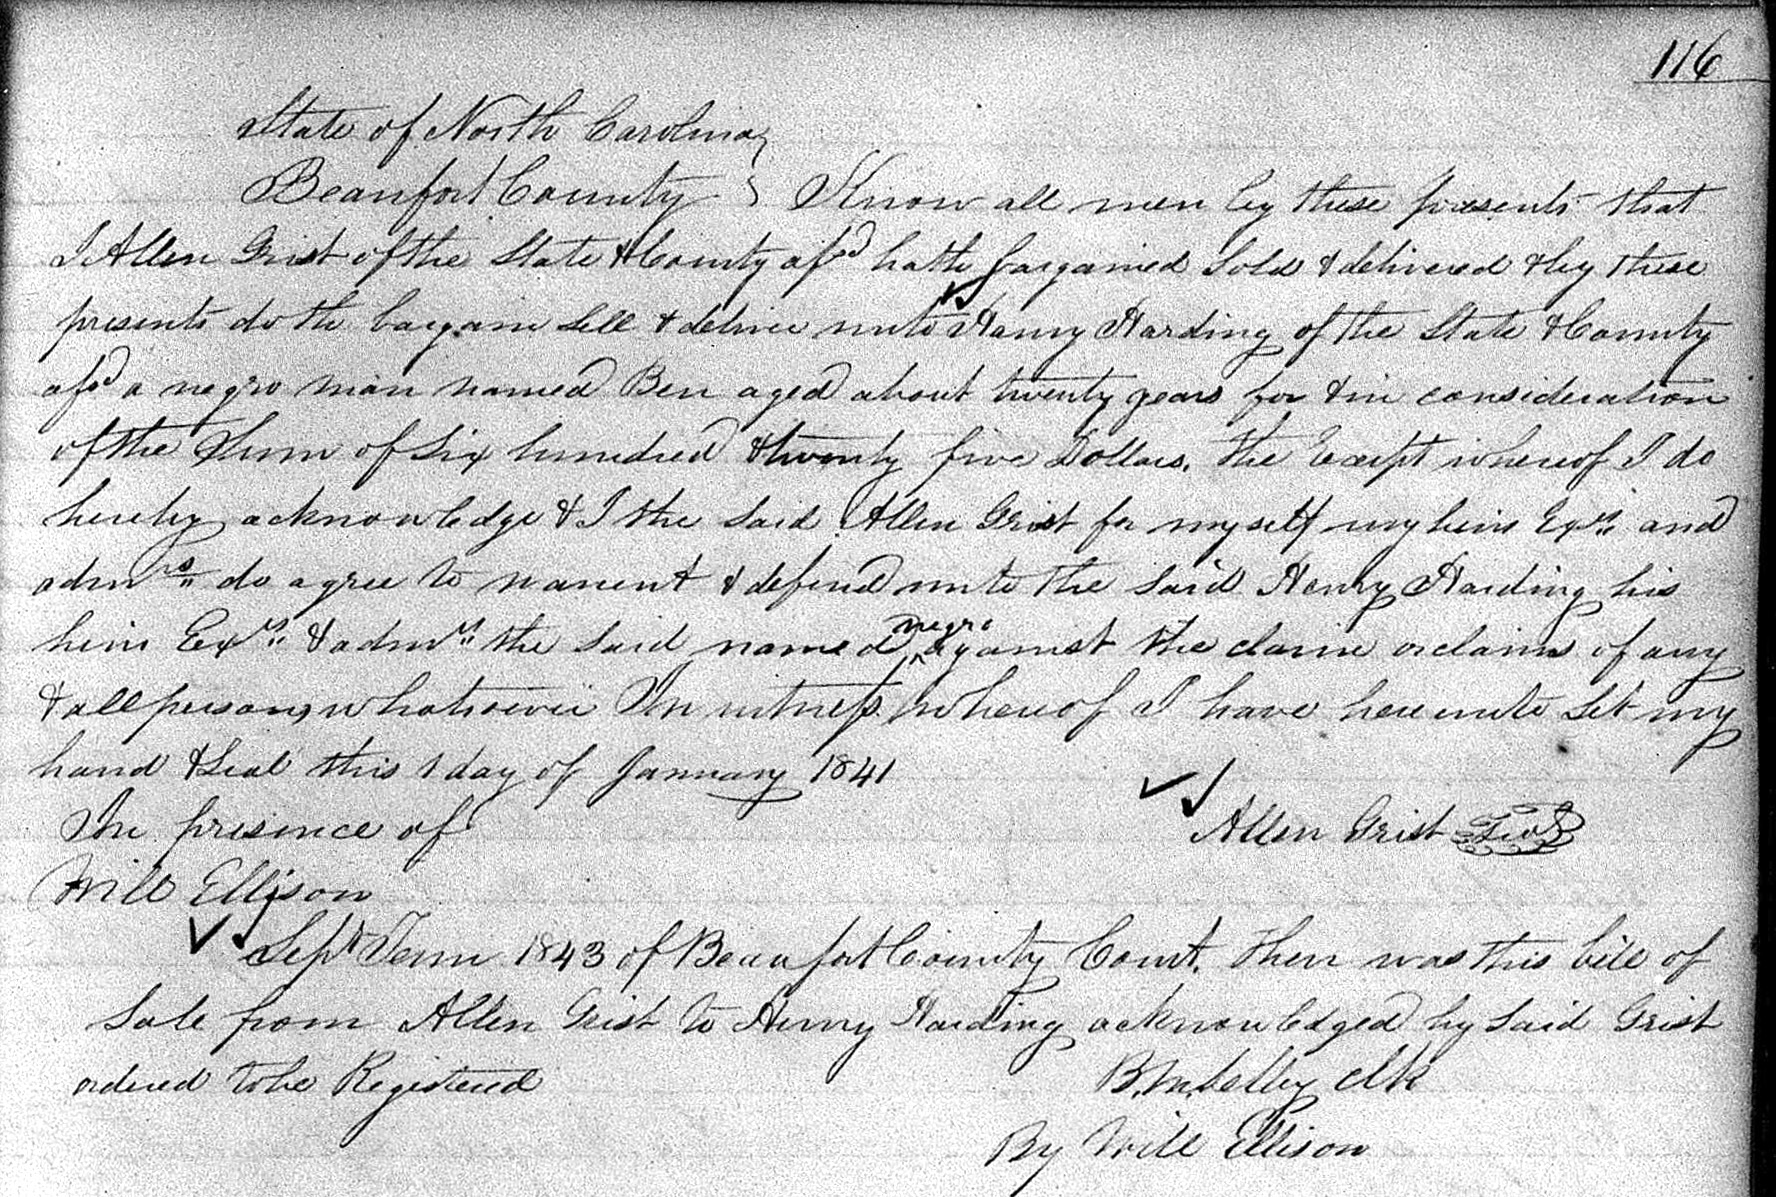 116
State of North Carolina
Beaufort County } Know all men by these presents that
I Allen Grist of the State & County afsd hath bargained Sold & delivered & by these
presents doth bargain Sell & deliver unto Henry Harding of the State & County
afsd a negro man named Ben aged about twenty years for & in consideration
of the Sum of Six hundred & twenty five Dollars. the receipt whereof I do
hereby acknowledge & I the Said Allen Grist for myself my heirs Exrs and
admrs do agree to warrent & defend unto the Said Henry Harding his
heirs Exrs & admrs the Said named negro against the claim or claims of any
& all persons whatsoever In witness whereof I have hereunto Set my
hand & Seal this 1 day of January 1841
In presence of Allen Grist Seal
Will Ellison
Sept Term 1843 of Beaufort County Court. Then was this bill of
Sale from Allen Grist to Henry Harding acknowledged by Said Grist
ordered to be Registered
B.M. Selby clk
By Will Ellison